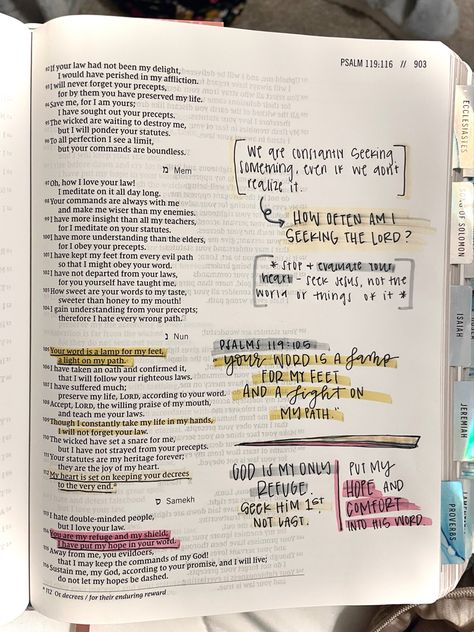 PSALM 119:116 // 903
92 If your law had not been my delight,
I would have perished in my affliction.
93 I will never forget your precepts,
for by them you have preserved my life.
94 Save me, for I am yours;
I have sought out your precepts.
95 The wicked are waiting to destroy me,
but I will ponder your statutes.
96 To all perfection I see a limit,
but your commands are boundless.
מ Mem
97 Oh, how I love your law!
I meditate on it all day long.
98 Your commands are always with me
and make me wiser than my enemies.
99 I have more insight than all my teachers,
for I meditate on your statutes.
100 I have more understanding than the elders,
for I obey your precepts.
101 I have kept my feet from every evil path
so that I might obey your word.
102 I have not departed from your laws,
for you yourself have taught me.
103 How sweet are your words to my taste,
sweeter than honey to my mouth!
104 I gain understanding from your precepts;
therefore I hate every wrong path.
נ Nun
105 Your word is a lamp for my feet,
a light on my path.
106 I have taken an oath and confirmed it,
that I will follow your righteous laws.
107 I have suffered much;
preserve my life, LORD, according to your word.
108 Accept, LORD, the willing praise of my mouth,
and teach me your laws.
109 Though I constantly take my life in my hands,
I will not forget your law.
110 The wicked have set a snare for me,
but I have not strayed from your precepts.
111 Your statutes are my heritage forever;
they are the joy of my heart.
112 My heart is set on keeping your decrees
to the very end.a
ס Samekh
113 I hate double-minded people,
but I love your law.
114 You are my refuge and my shield;
I have put my hope in your word.
115 Away from me, you evildoers,
that I may keep the commands of my God!
116 Sustain me, my God, according to your promise, and I will live;
do not let my hopes be dashed.
a 112 Or decrees / for their enduring reward
We are constantly seeking
something, even if we don't
realize it.
HOW OFTEN AM I
SEEKING THE LORD?
* Stop + evaluate your
heart - seek Jesus, not the
world or things of it *
PSALMS 119:105
"YOUR WORD IS A lamp
FOR MY FEET
AND A light ON
MY PATH."
GOD IS MY ONLY
REFUGE.
SEEK HIM 1ST
NOT LAST.
PUT MY
HOPE AND
COMFORT
INTO HIS WORD.
ECCLESIASTES
OF SOLOMON
ISAIAH
JEREMIAH
PROVERBS